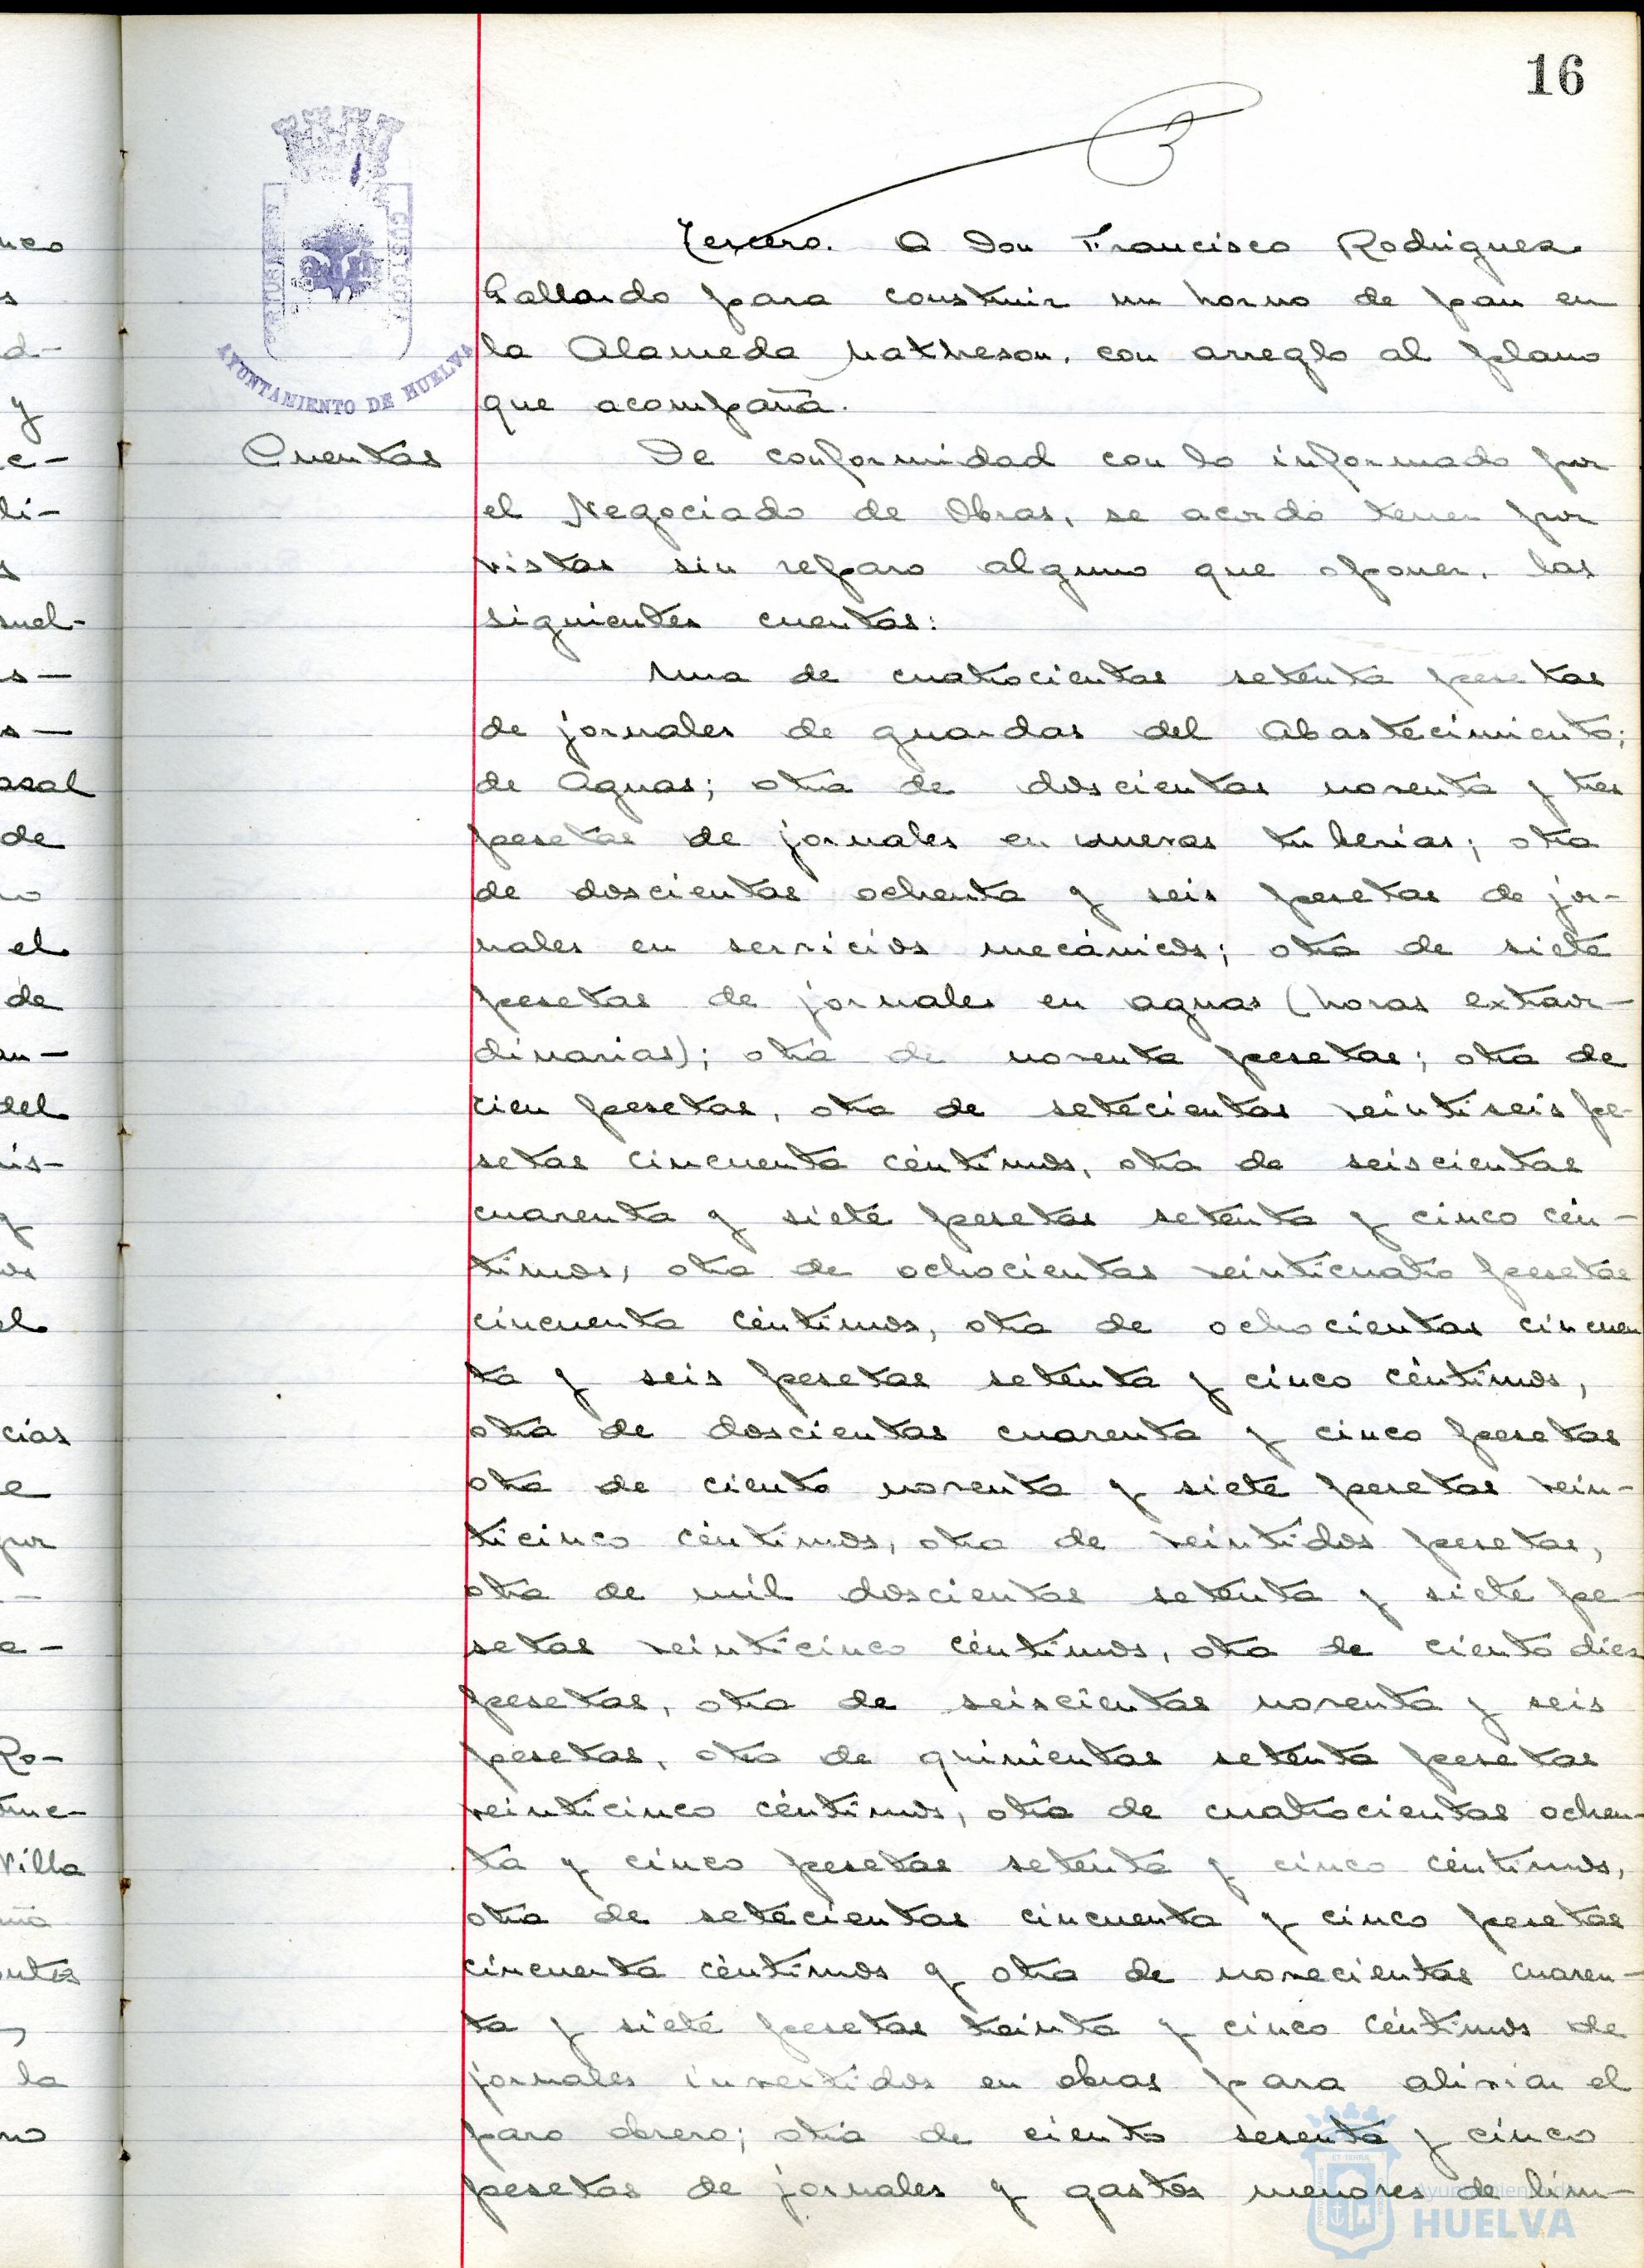 16
Tercero. A Don Francisco Rodriguez
Gallardo para construir un horno de pan en
la Alameda Matheson, con arreglo al plano
que acompaña.
AYUNTAMIENTO DE HUELVA
Cuentas
De conformidad con lo informado por
el Negociado de Obras, se acordó tener por
vistas sin reparo alguno que oponer, las
siguientes cuentas:
Una de cuatrocientas setenta pesetas
de jornales de guardas del Abastecimiento;
de Aguas; otra de doscientas noventa y tres
pesetas de jornales en nuevas tuberias; otra
de doscientas ochenta y seis pesetas de jor-
nales en servicios mecánicos; otra de siete
pesetas de jornales en aguas (horas extraor-
dinarias); otra de noventa pesetas; otra de
cien pesetas, otra de setecientas veintiseis pe-
setas cincuenta céntimos, otra de seiscientas
cuarenta y siete pesetas setenta y cinco cén-
timos, otra de ochocientas veinticuatro pesetas
cincuenta céntimos, otra de ochocientas cincuen
ta y seis pesetas setenta y cinco céntimos,
otra de doscientas cuarenta y cinco pesetas
otra de ciento noventa y siete pesetas vein-
ticinco céntimos, otra de veintidos pesetas,
otra de mil doscientas setenta y siete pe-
setas veinticinco céntimos, otra de ciento diez
pesetas, otra de seiscientas noventa y seis
pesetas, otra de quinientas setenta pesetas
veinticinco céntimos, otra de cuatrocientas ochen-
ta y cinco pesetas setenta y cinco céntimos,
otra de setecientas cincuenta y cinco pesetas
cincuenta céntimos y otra de novecientas cuaren-
ta y siete pesetas treinta y cinco céntimos de
jornales invertidos en obras para aliviar el
paro obrero; otra de ciento sesenta y cinco
pesetas de jornales y gastos menores de lim-
Ayuntamiento de
HUELVA